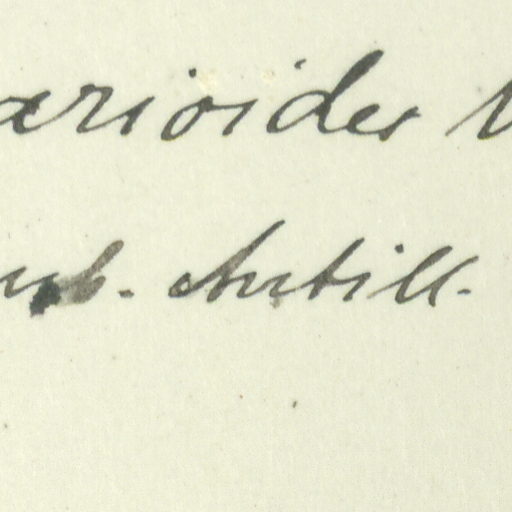 arioides
ub. Antill.